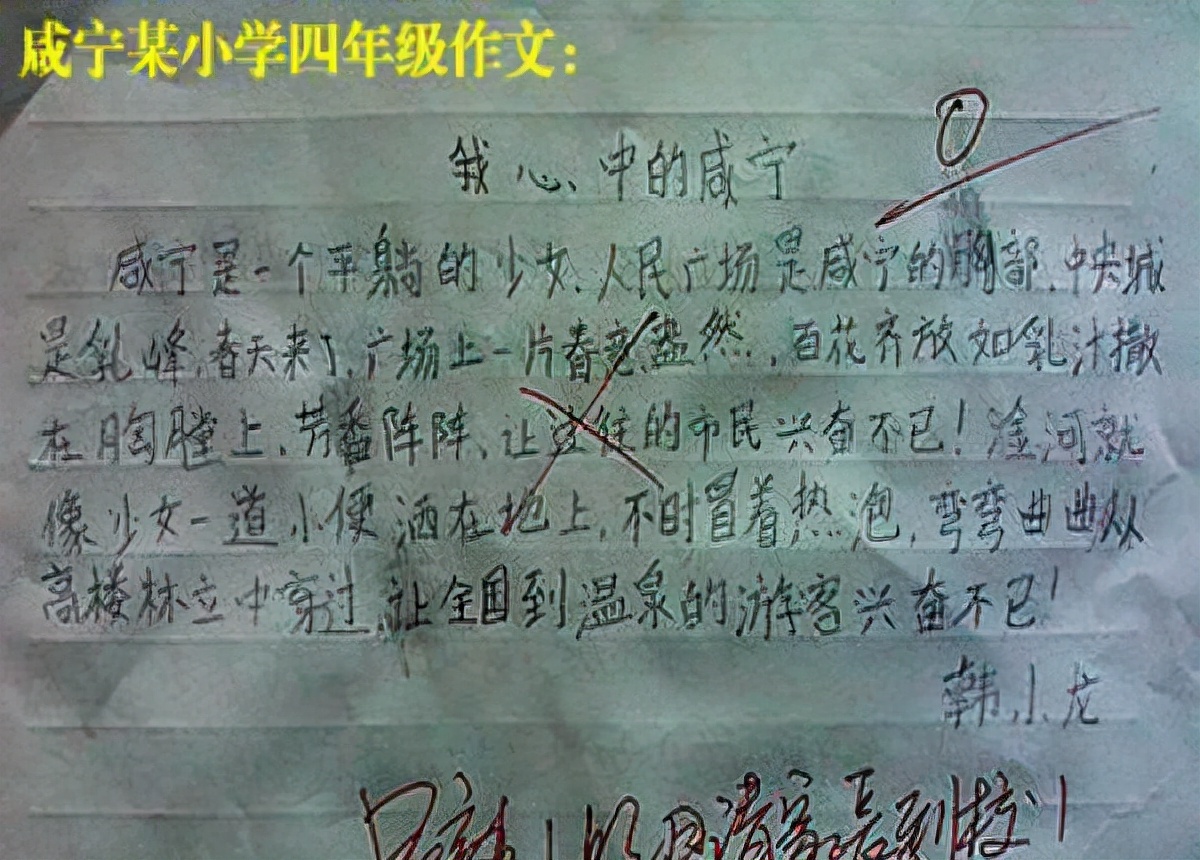 咸宁某小学四年级作文：
0
我心中的咸宁
咸宁是一个平躺的少女、人民广场是咸宁的胸部、中央城
是乳峰、春天来了、广场上一片春意盎然，百花齐放如乳汁撒
在胸膛上、芳香阵阵、让过往的市民兴奋不已！淦河就
像少女一道小便洒在地上，不时冒着热泡，弯弯曲曲从
高楼林立中穿过、让全国到温泉的游客兴奋不已！
韩小龙
明请家长到校！